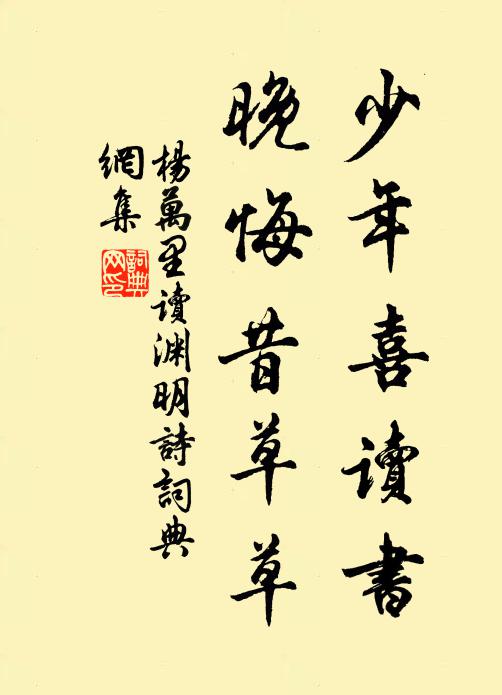 少年喜讀書
晚悔昔草草
楊萬里讀淵明詩詞典
網集
詞典
网印